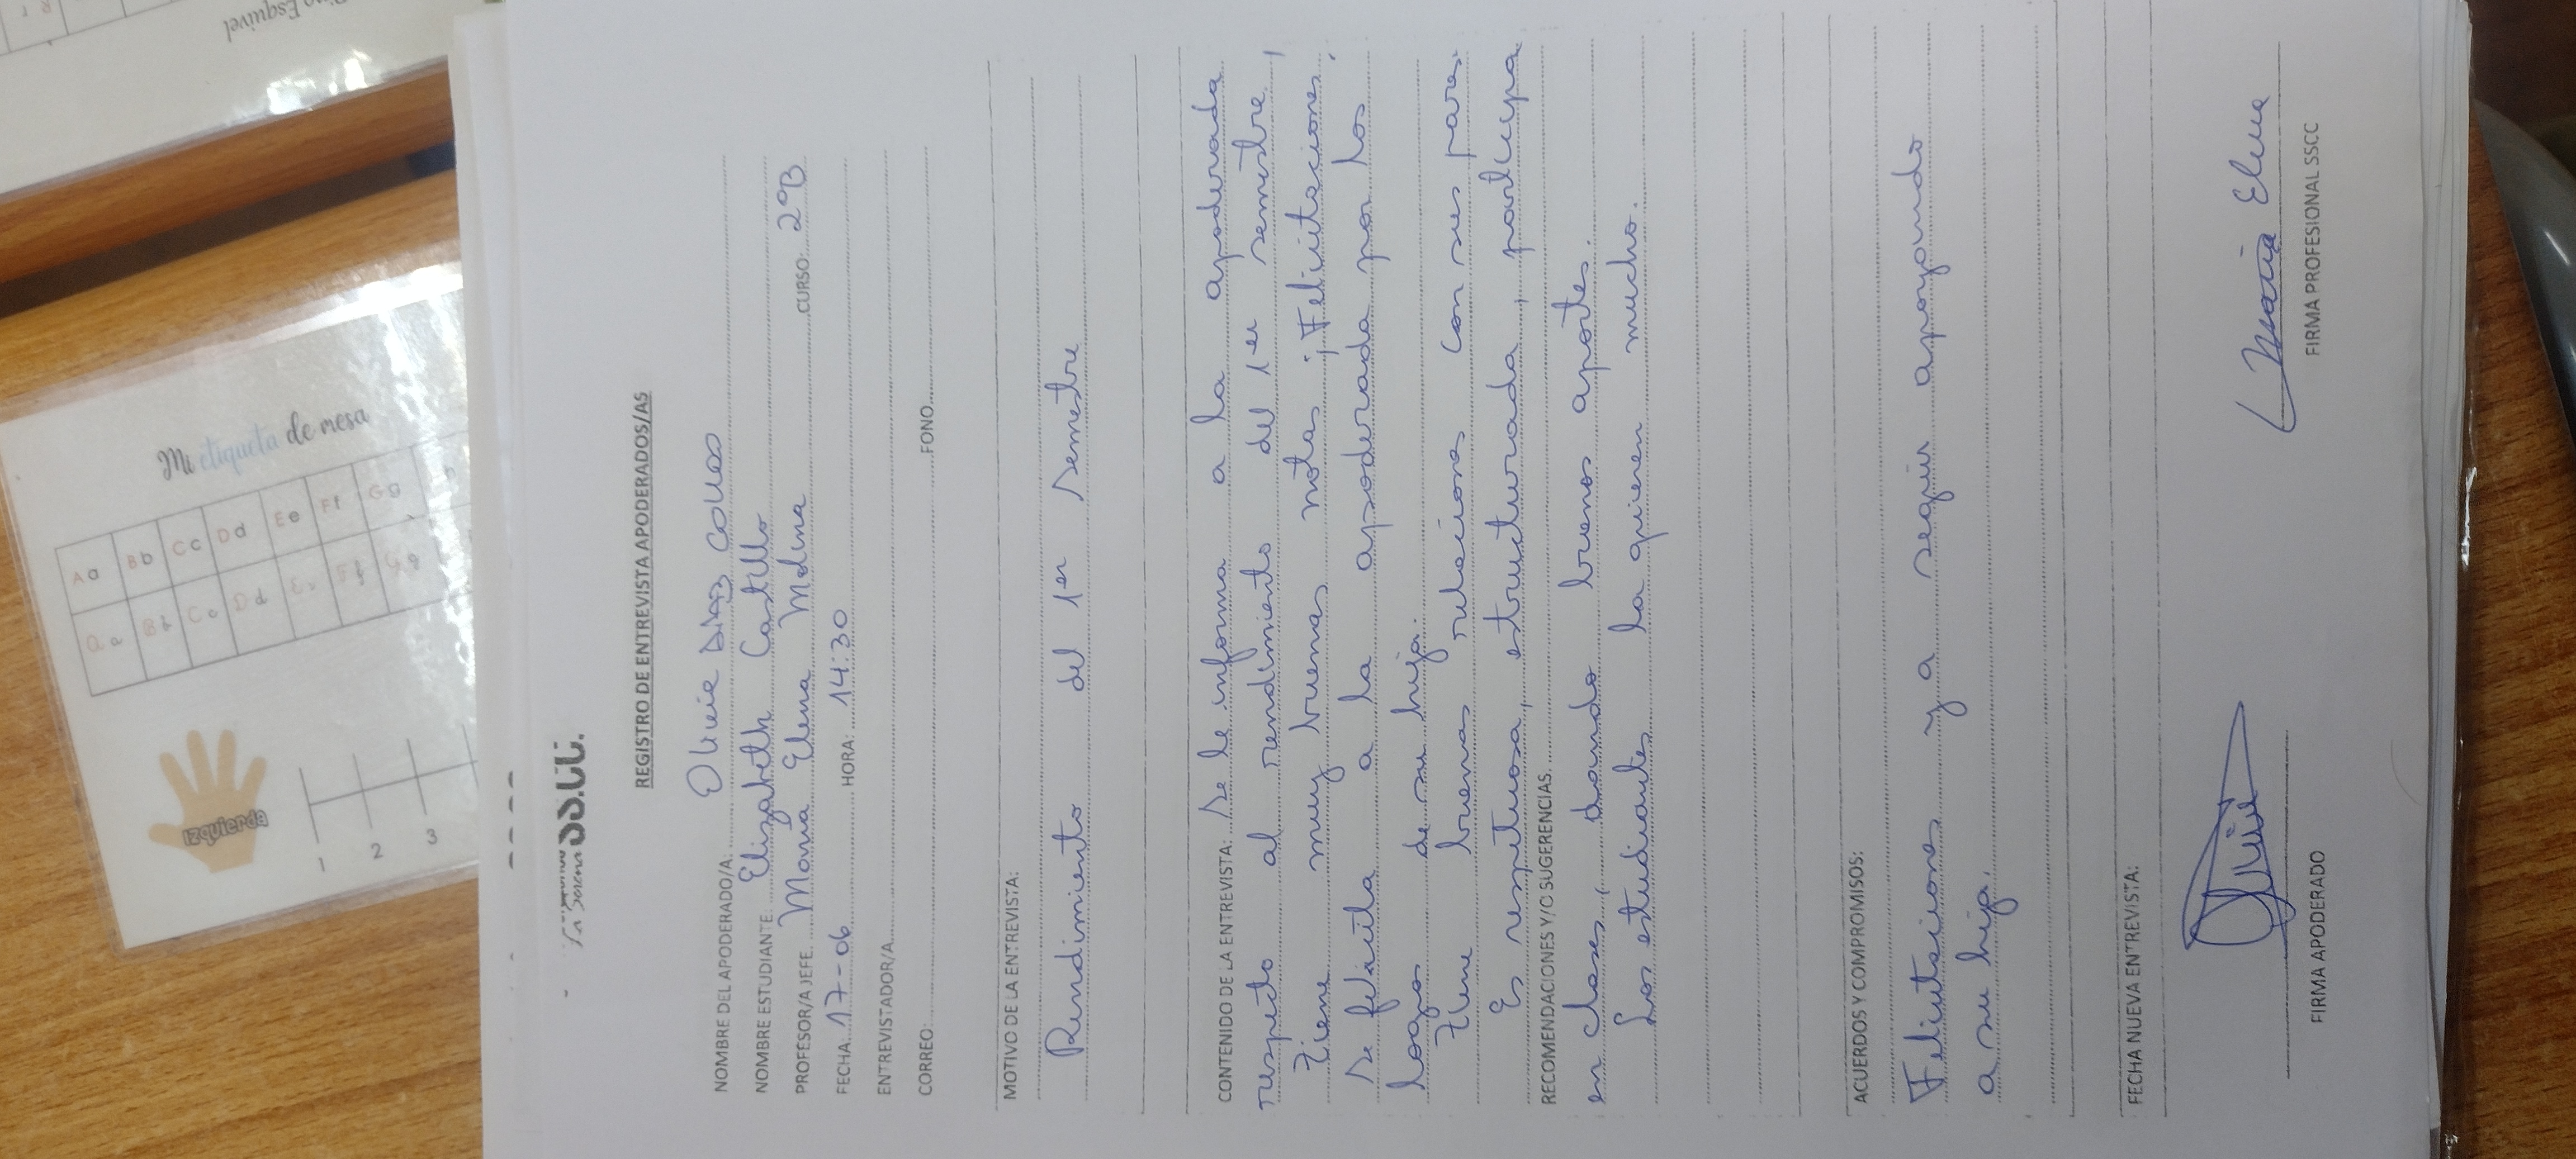 SS.CC.
La Serena
REGISTRO DE ENTREVISTA APODERADOS/AS
NOMBRE DEL APODERADO/A: Olivia Díaz Collos
NOMBRE ESTUDIANTE Elizabeth Castillo
PROFESOR/A JEFE María Elena Molina CURSO: 2ºB
FECHA 17-06 HORA: 14:30
ENTREVISTADOR/A
CORREO: FONO
MOTIVO DE LA ENTREVISTA:
Rendimiento del 1er semestre
CONTENIDO DE LA ENTREVISTA: Se le informa a la apoderada
respecto al rendimiento del 1er semestre,
tiene muy buenas notas ¡Felicitaciones!
Se felicita a la apoderada por los
logros de su hija.
Tiene buenas relaciones con sus pares.
Es respetuosa, estructurada, participa
RECOMENDACIONES Y/O SUGERENCIAS
en clases, dando buenos aportes.
Los estudiantes la quieren mucho.
ACUERDOS Y COMPROMISOS:
Felicitaciones y a seguir apoyando
a su hija.
FECHA NUEVA ENTREVISTA:
Olivia
María Elena
FIRMA APODERADO
FIRMA PROFESIONAL SSCC
Mi etiqueta de mesa
A a B b C c D d E e F f G g
A a B b C c D d E e F f G g
Izquierda
1 2 3
Esquivel